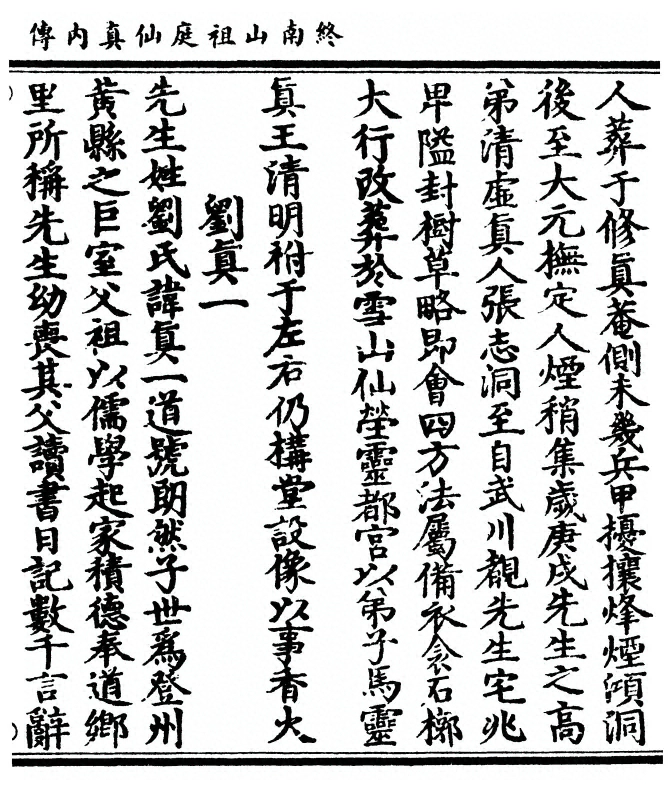 終南山祖庭仙真內傳
人葬于修眞菴側未幾兵甲擾攘烽煙澒洞
後至大元撫定人煙稍集歲庚戌先生之高
弟清虛眞人張志洞至自武川覩先生宅兆
卑隘封樹草略即會四方法屬備衣衾石槨
大行改葬於雪山仙塋靈都宮以弟子馬靈
眞王清明祔于左右仍構堂設像以事香火
劉眞一
先生姓劉氏諱眞一道號朗然子世爲登州
黃縣之巨室父祖以儒學起家積德奉道鄉
里所稱先生幼喪其父讀書日記數千言辭